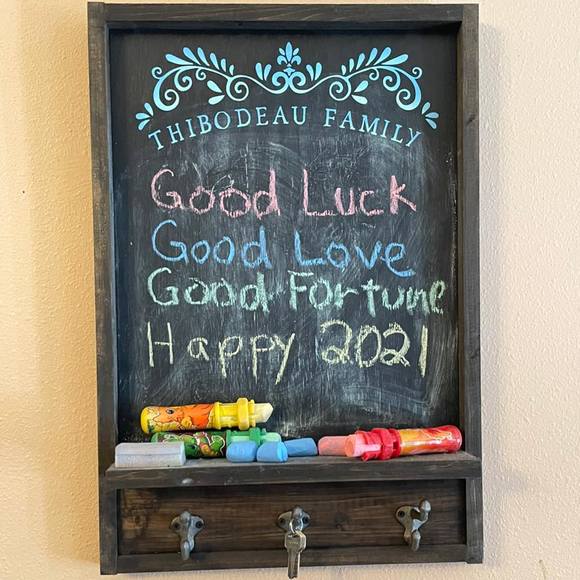 THIBODEAU FAMILY
Good Luck
Good Love
Good Fortune
Happy 2021